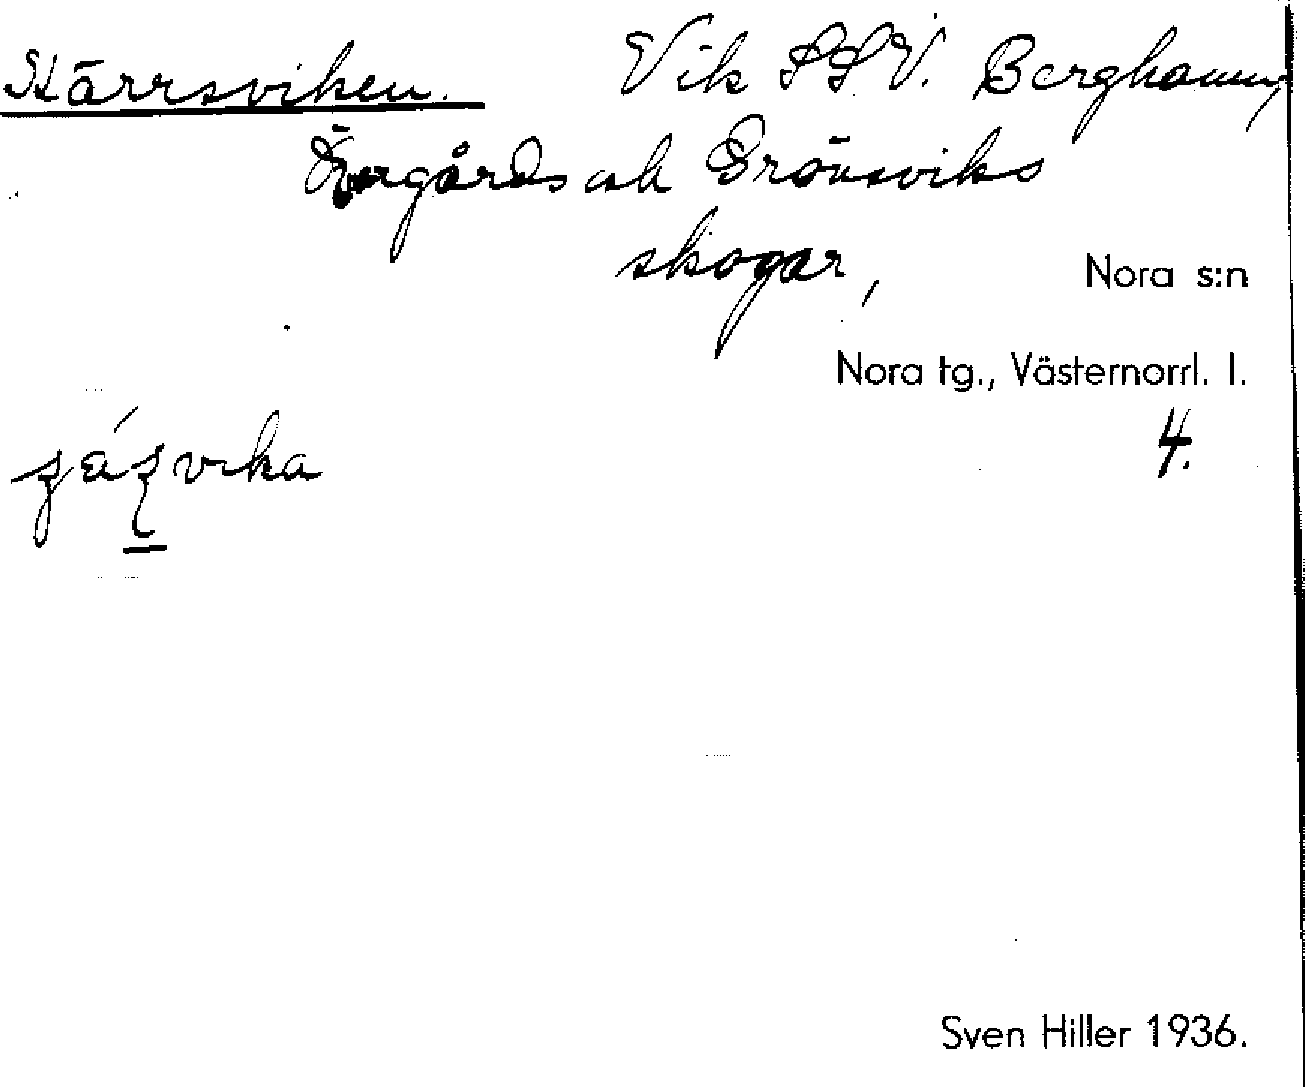 Kärrsviken. Vik S S V. Berghamn,
Övergårds och Grönsviks
skogar,
Nora s:n
Nora tg., Västernorrl. l.
4.
Sven Hiller 1936.